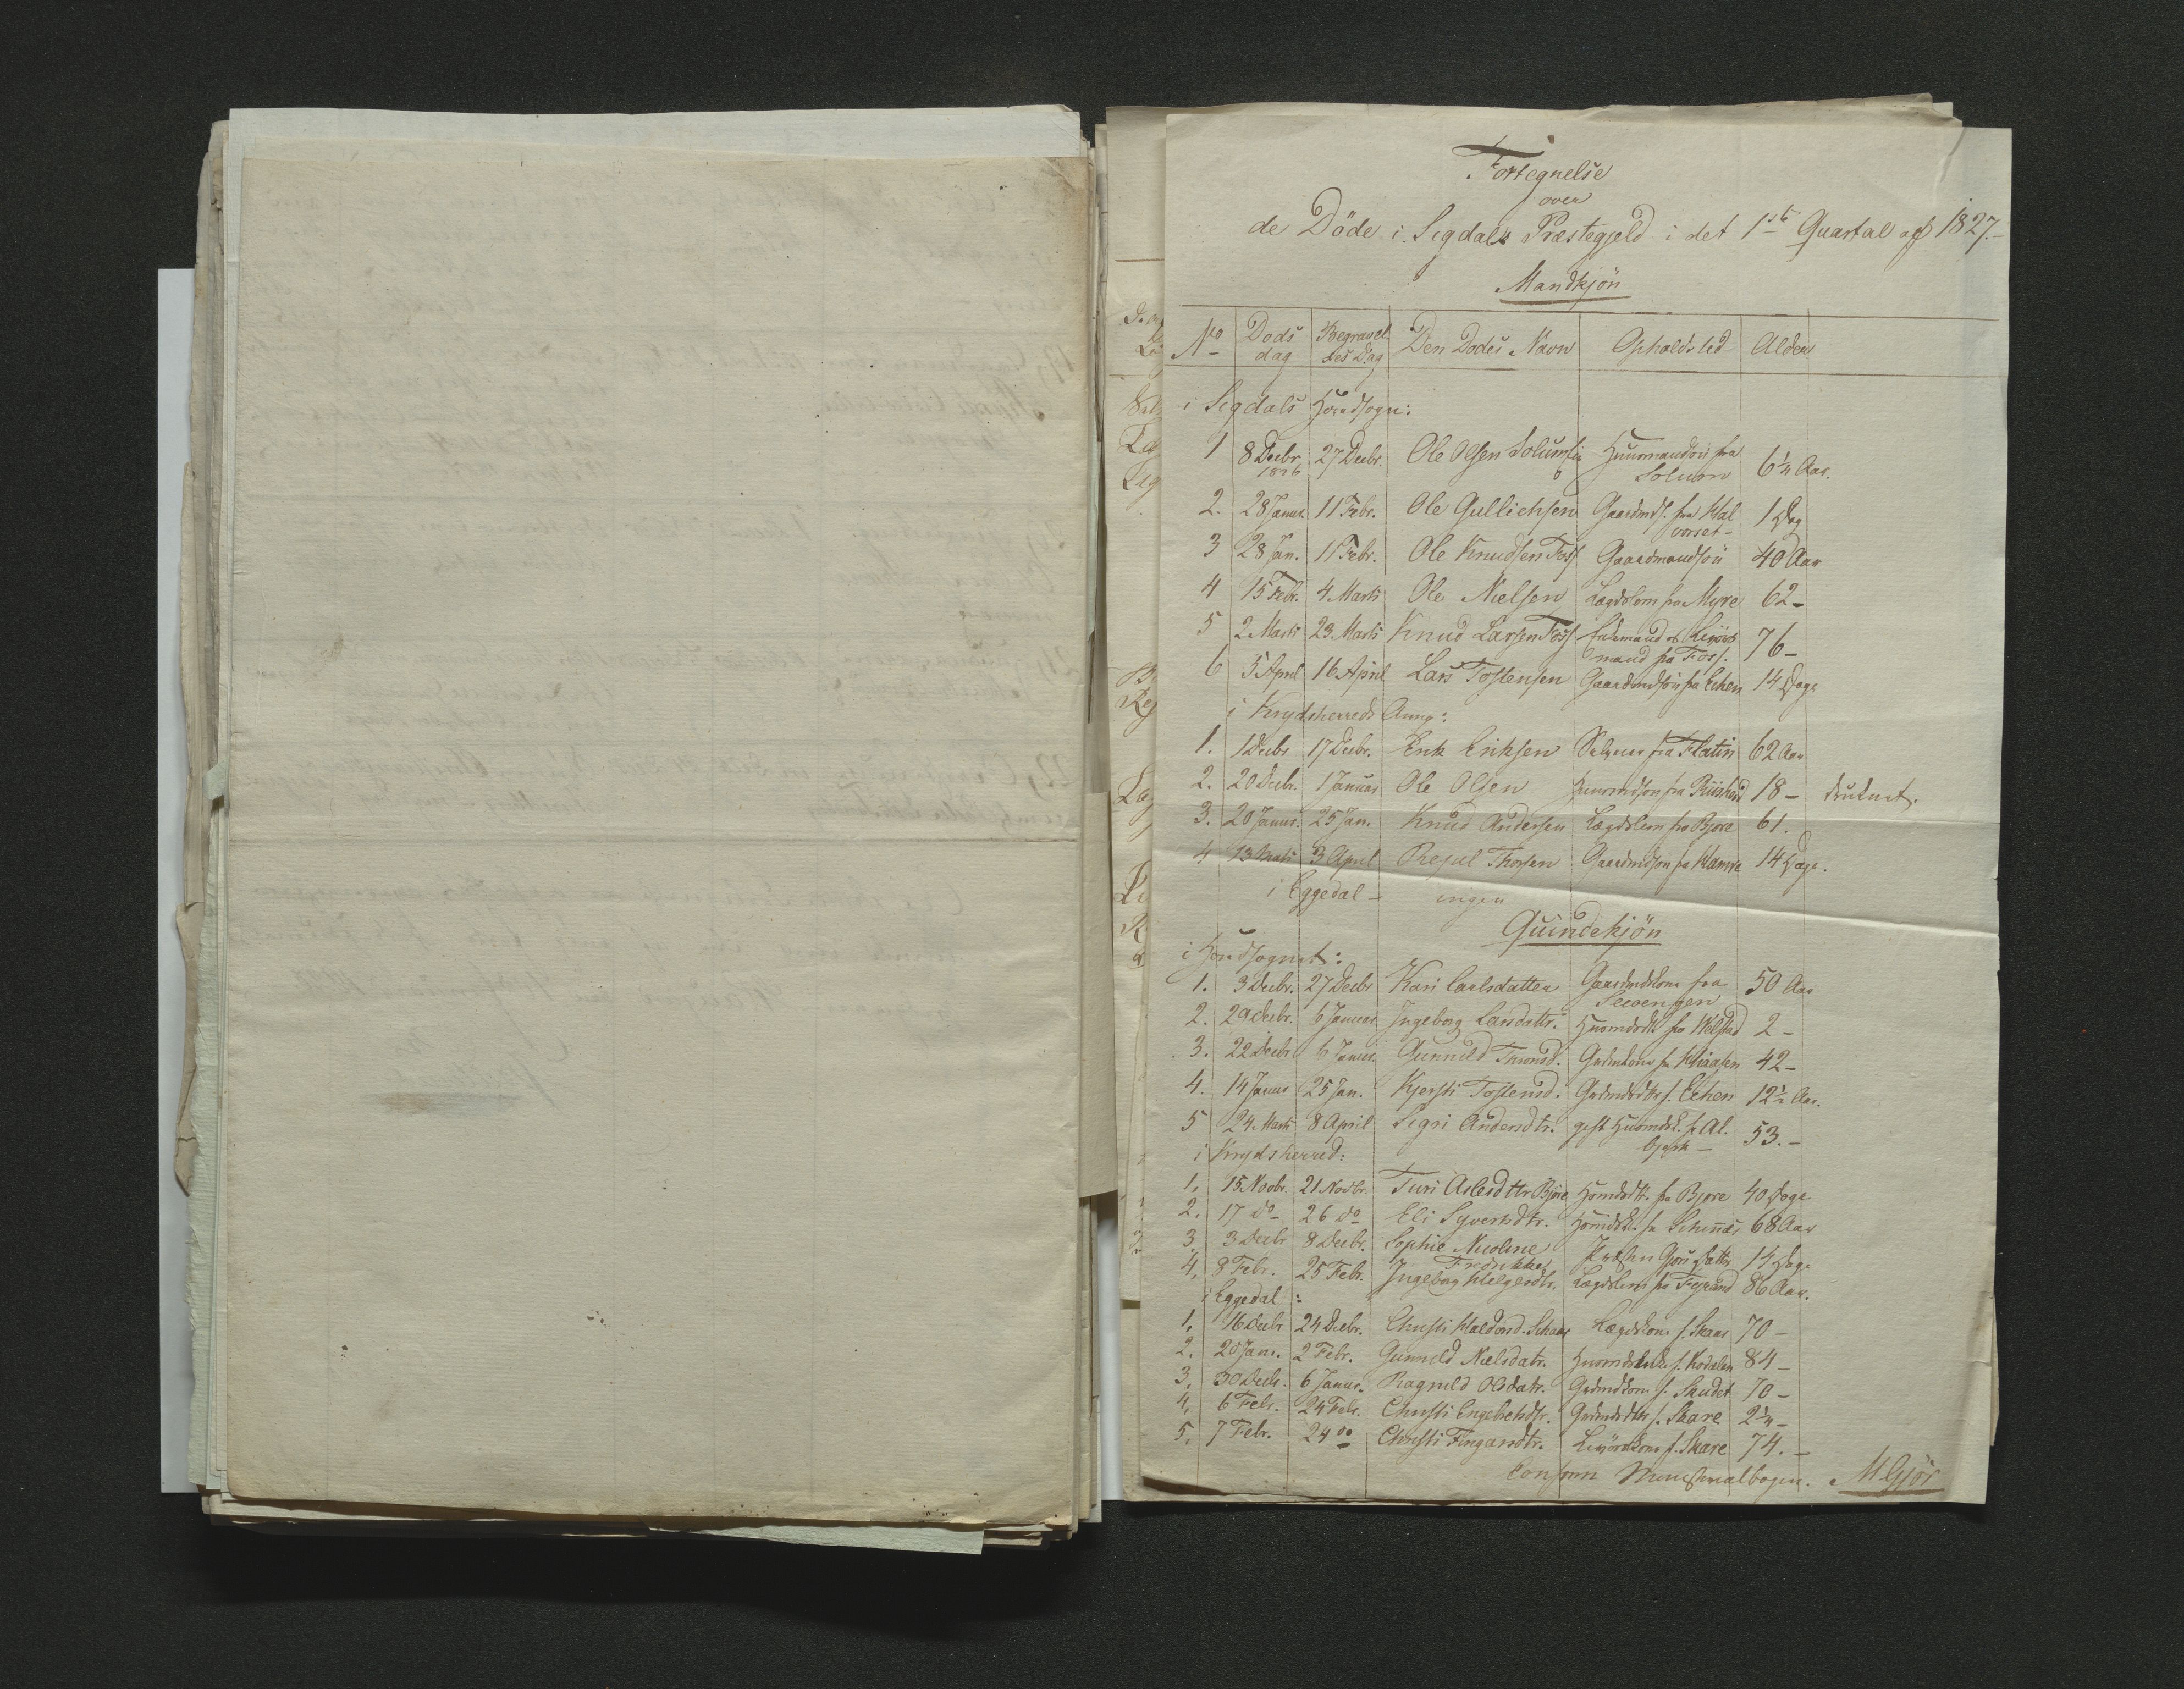 Fortegnelse
over
de Döde i Sigdals Præstegjeld i det 1ste Quartal af 1827.-
Mandkjön
No | Döds dag | Begravelses Dag | Den Dödes Navn | Opholdsted | Alder
i Sigdals Hovedsogn:
1 | 8 Decbr 1826 | 27 Decbr. | Ole Olsen Solumlie | Huusmandsön fra Solum | 6¼ Aar.
2. | 28 Januar. | 11 Febr. | Ole Gullichsen | Gaardmds. fra Halvorset- | 1 Dag
3 | 28 Jan. | 11 Febr. | Ole Knudsen Foss | Gaardmandsön | 40 Aar
4 | 15 Febr. | 4 Marts | Ole Nielsen | Lægdslem fra Myre | 62-
5 | 2 Marts | 23 Marts | Knud Larsen Foss | Enkemand og Livörsmand fra Foss. | 76-
6 | 5 April | 16 April | Lars Tostensen | Gaardmdsön fra Echen | 14 Dage
i Krydsherreds Annex:
1. | 1 Decbr | 17 Decbr. | Erik Eriksen | fra Flatin | 62 Aar
2. | 20 Decbr. | 1 Januar | Ole Olsen | Huusmdsön fra | 18- | druknet.
3. | 20 Januar. | 25 Jan. | Knud Andersen | Lægdslem fra Björe | 61.
4 | 13 Marts | 3 April | Thorsen | Gaardmdsön fra Hamre | 14 Dage.
i Eggedal- ingen
Quindekjön
i Hovedsognet:
1. | 3 Decbr. | 27 Decbr | Kari Carlsdatter | Gaardmdskone fra | 50 Aar
2. | 29 Decbr. | 6 Januar | Ingeborg Larsdattr. | Huusmdsdtr fra Kolstad | 2-
3. | 22 Decbr | 6 Januar. | Gunnild Tronsd. | Grdmdkone fra | 42-
4. | 14 Januar | 25 Jan. | Kjersti Tostensd. | Grdmdsdttr f. Echen | 12½ Aar.
5 | 24 Marts | 8 April | Sigri Andersdtr. | gift Huusmdsk. fr Albjerk- | 53.-
i Krydsherred:
1, | 15 Novbr. | 21 Novbr. | Turi Aslesdttr Björe | Husmdsdtr. fra Björe | 40 Dage
2. | 17 do- | 26 do | Eli Syvertsdtr. | Husmdsk. fra | 68 Aar
3, | 3 Decbr | 8 Decbr. | Sophie Nicoline Fredrikke | Præsten Gjörs Datter | 14 Dage
4, | 8 Febr. | 25 Febr. | Ingeborg Helgesdtr. | Lægdslem fra | 86 Aar.
i Eggedal:
1, | 16 Decbr | 24 Decbr. | Christi Haldorsd. Schare | Lægdskone f. Skare | 70-
2. | 20 Janr. | 2 Febr. | Gunnild Nielsdatr. | | 84-
3, | 30 Decbr. | 6 Januar. | Ragnild Olsdatr. | Grdmdkone f. Skudet | 70-
4, | 6 Febr. | 24 Febr. | Christi Engebretsdtr. | Grdmdsdttr f. Skare | 2¼-
5, | 7 Febr. | 24 do | Christi Fingarsdtr. | Livörskone f. Skare | 74.-
Conform Ministerialbogen. MGjör